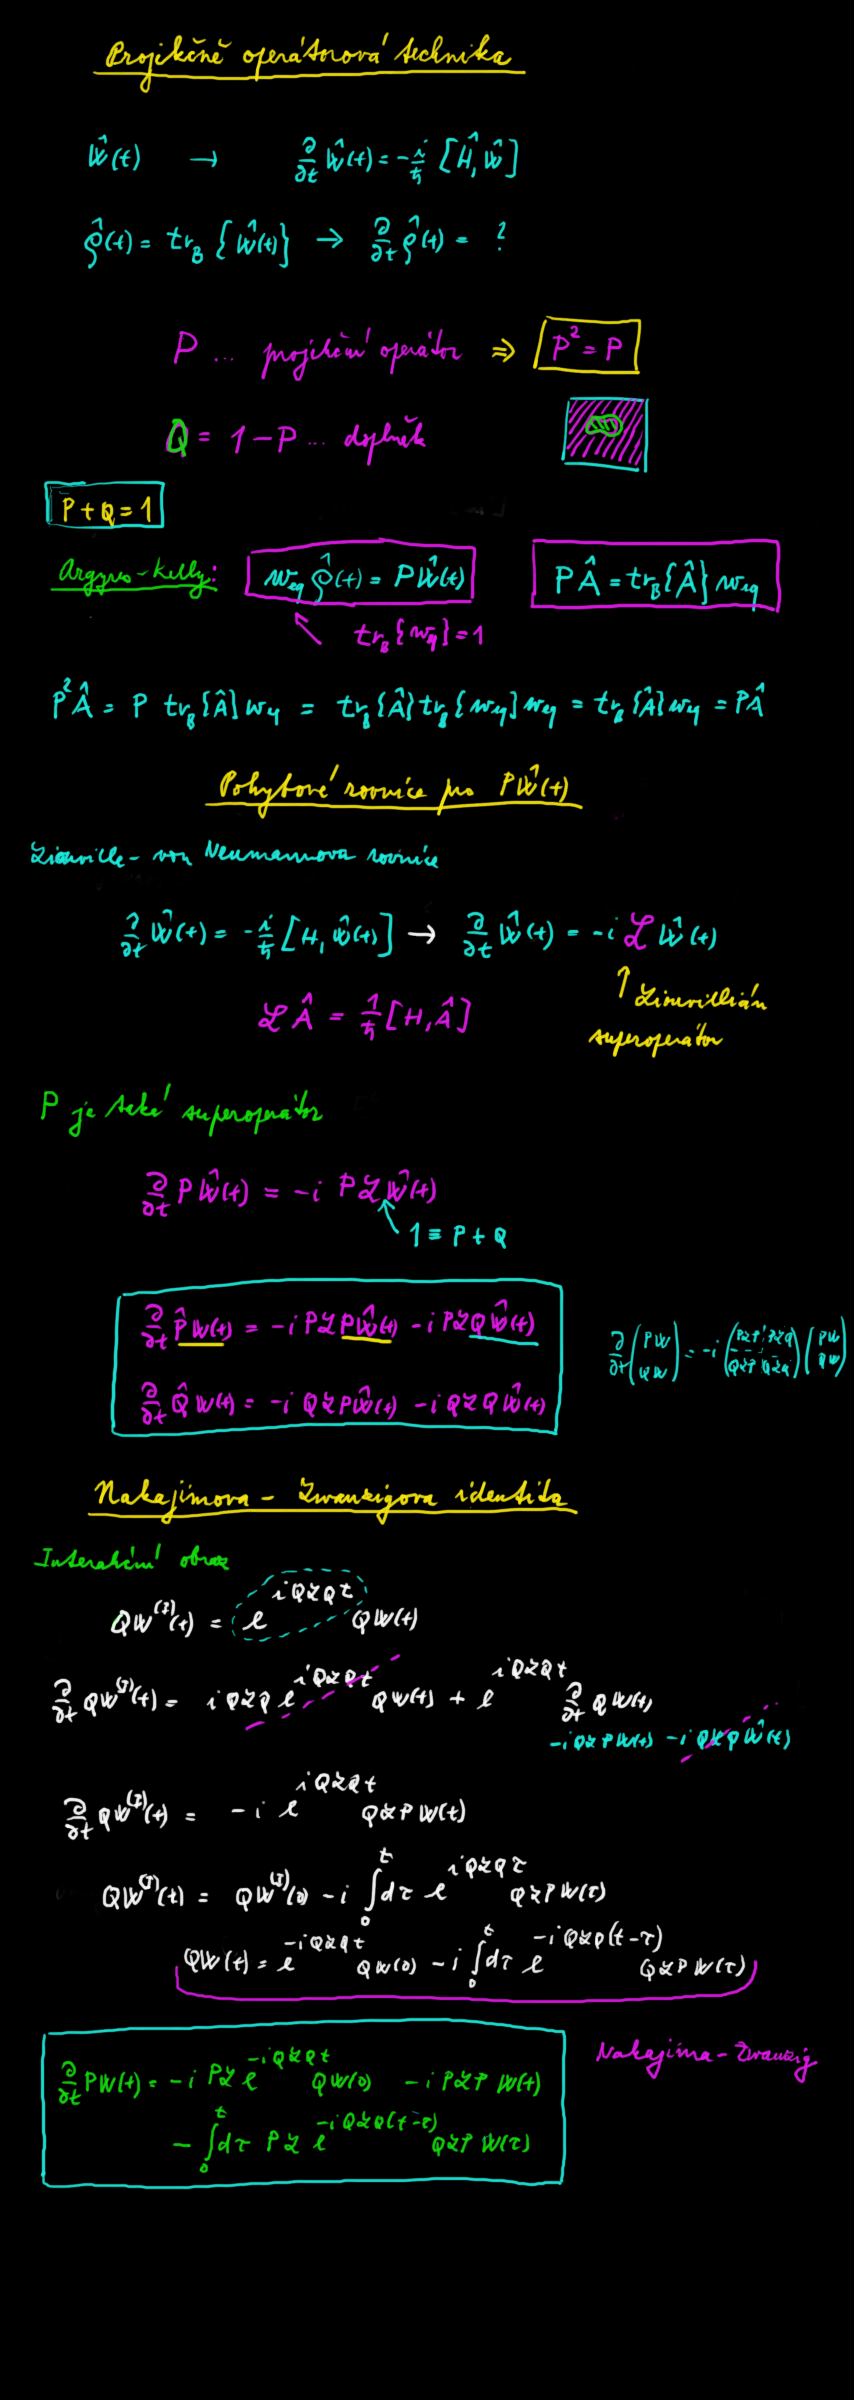 Projekčně operátorová technika
Ŵ(t) → ∂/∂t Ŵ(t) = -i/ħ [Ĥ, Ŵ]
ρ̂(t) = tr_B {Ŵ(t)} → ∂/∂t ρ̂(t) = ?
P ... projekční operátor ⇒ P² = P
Q = 1 - P ... doplněk
P + Q = 1
Argyres - Kelly: w_eq ρ̂(t) = P Ŵ(t) P Â = tr_B{Â} w_eq
tr_B{w_eq} = 1
P² Â = P tr_B{Â} w_eq = tr_B{Â} tr_B{w_eq} w_eq = tr_B{Â} w_eq = P Â
Pohybové rovnice pro P Ŵ(t)
Liouville - von Neumannova rovnice
∂/∂t Ŵ(t) = -i/ħ [H, Ŵ(t)] → ∂/∂t Ŵ(t) = -i ℒ Ŵ(t)
ℒ Â = 1/ħ [H, Â]
↑ Liouvillián
superoperátor
P je také superoperátor
∂/∂t P Ŵ(t) = -i P ℒ Ŵ(t)
1 ≡ P + Q
∂/∂t P̂ W(t) = -i P ℒ P Ŵ(t) - i P ℒ Q Ŵ(t)
∂/∂t Q̂ W(t) = -i Q ℒ P Ŵ(t) - i Q ℒ Q Ŵ(t)
∂/∂t (PW QW) = -i (PℒP PℒQ QℒP QℒQ) (PW QW)
Nakajimova - Zwanzigova identita
Interakční obraz
QW^(I)(t) = e^{iQℒQt} QW(t)
∂/∂t QW^(I)(t) = iQℒQ e^{iQℒQt} QW(t) + e^{iQℒQt} ∂/∂t QW(t)
-iQℒPW(t) - iQℒQŴ(t)
∂/∂t QW^(I)(t) = -i e^{iQℒQt} QℒPW(t)
QW^(I)(t) = QW^(I)(0) - i ∫₀ᵗ dτ e^{iQℒQτ} QℒPW(τ)
QW(t) = e^{-iQℒQt} QW(0) - i ∫₀ᵗ dτ e^{-iQℒQ(t-τ)} QℒPW(τ)
Nakajima - Zwanzig
∂/∂t PW(t) = -i Pℒ e^{-iQℒQt} QW(0) - i PℒP W(t)
- ∫₀ᵗ dτ Pℒ e^{-iQℒQ(t-τ)} QℒP W(τ)